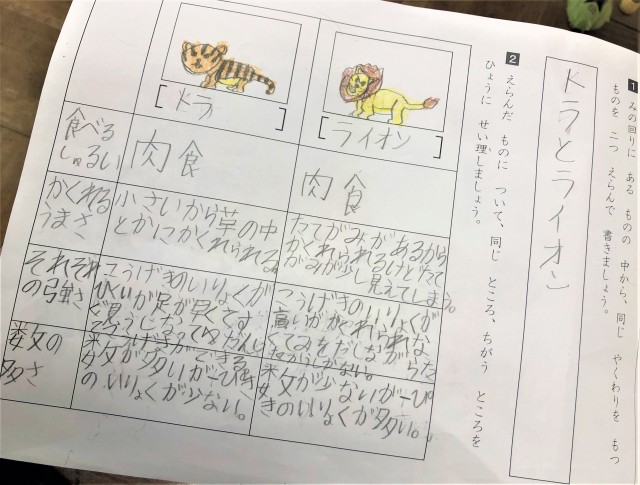 1 みの回りに ある ものの 中から、同じ やくわりを もつ
ものを 二つ えらんで 書きましょう。
トラとライオン
2 えらんだ ものに ついて、同じ ところ、ちがう ところを
ひょうに せい理しましょう。
[ライオン]
[トラ]
食べる
しゅるい
肉食
肉食
かくれる
うまさ
たてがみがあるから
かくれられるけどたて
がみが少し見えてしまう。
小さいから草の中
とかにかくれられる。
それぞれ
の強さ
こうげきのいりょくが
ひくいが足が早くてす
数の
多さ
数が少ないが一ぴ
きのいりょくが多い。
数が多いが一ぴき
のいりょくが少ない。